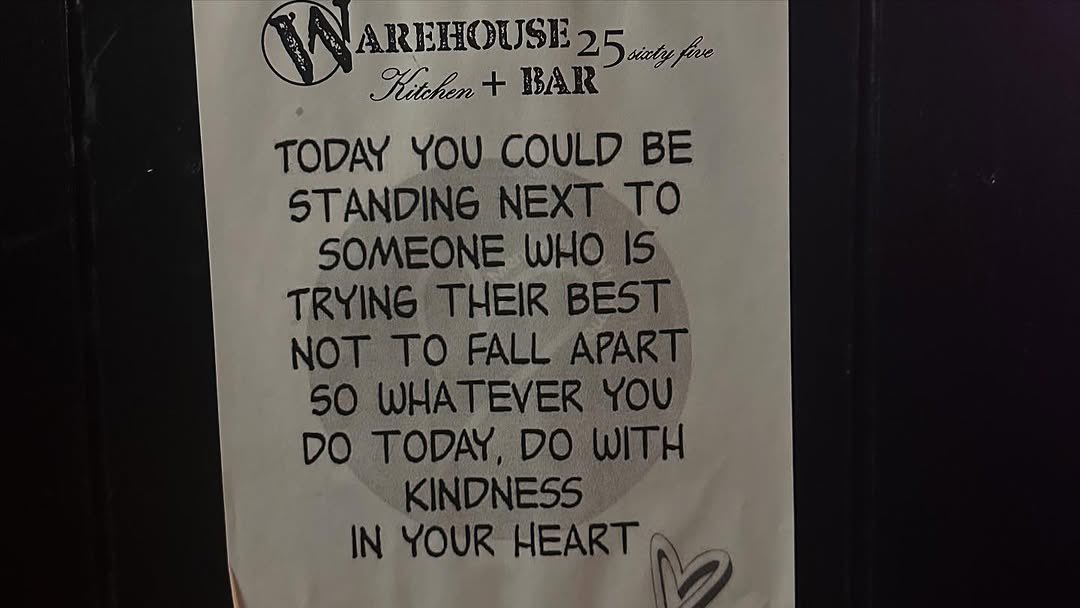 WAREHOUSE 25 sixty five
Kitchen + BAR
TODAY YOU COULD BE
STANDING NEXT TO
SOMEONE WHO IS
TRYING THEIR BEST
NOT TO FALL APART
SO WHATEVER YOU
DO TODAY, DO WITH
KINDNESS
IN YOUR HEART